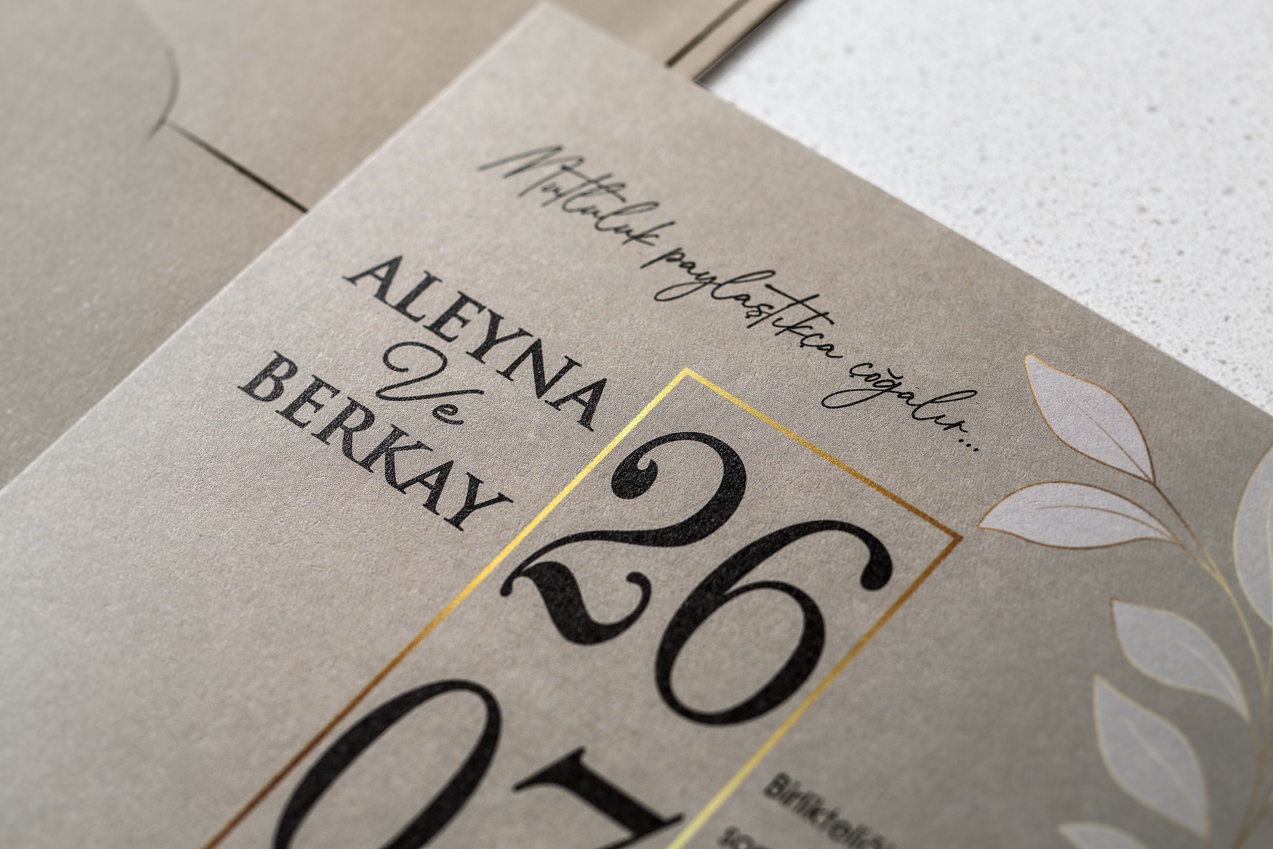 Mutluluk paylaştıkça çoğalır...
ALEYNA
Ve
BERKAY
26
07